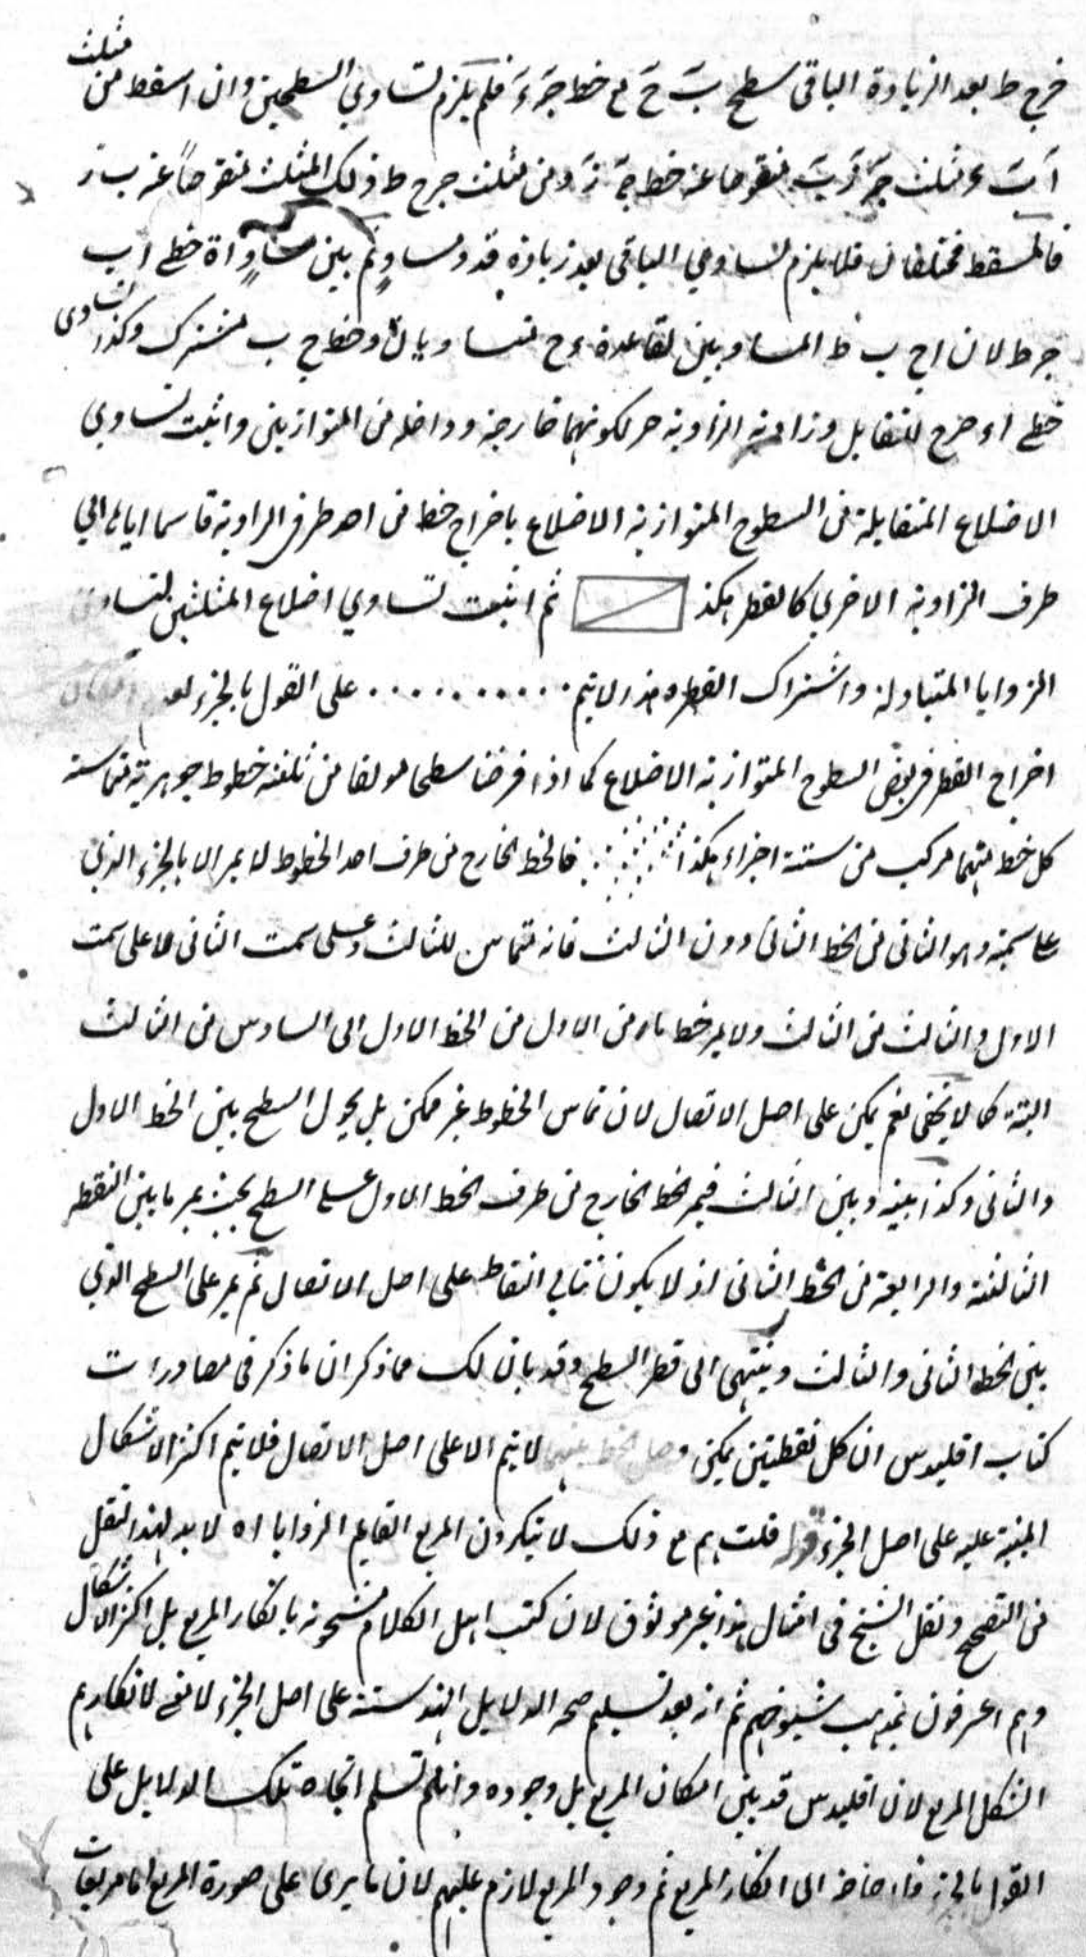 خرج ط بعد الزيادة الباقى سطح ب ح مع خط جء فلم يلزم تساوي السطحين وان اسقط من مثلث
منقوصا عن خط ومن مثلث جرح ط ذلك المثلث منقوصا عن ب ز
فالمسقط مختلفان فلا يلزم تساوي الباقى بعد زيادة قدر مساو ثم بين مساواة خطى اب
جرط لان اج ب ط المساويين لقاعدة ءح متساويان وخط ج ب مشترك وكذا تساوى
خطى اء جرح للتقابل وزاوية الزاوية حر لكونهما خارجة وداخلة من المتوازيين واثبت تساوي
الاضلاع المتقابلة من السطوح المتوازية الاضلاع باخراج خط من احد طرفى الزاوية قاسما اياها الى
طرف الزاوية الاخرى كالقطر هكذا ثم اثبت تساوي اضلاع المثلثين لتساوى
الزوايا المتبادلة واشتراك القطر وهذا لا يتم .......... على القول بالجزء لعدم امكان
اخراج القطر فى بعض السطوح المتوازية الاضلاع كما اذا فرضنا سطحا مولفا من ثلثة خطوط جوهرية متماسة
كل خط منهما مركب من ستة اجزاء هكذا فالخط الخارج من طرف احد الخطوط لا يمر الا بالجزء الذى
على سمته وهو الثانى من الخط الثانى دون الثالث فانه متماس للثالث وعلى سمت الثانى لا على سمت
الاول والثالث من الثالث ولا يمر خط مار من الاول من الخط الاول الى السادس من الثالث
البتة كما لا يخفى نعم يمكن على اصل الاتصال لان تماس الخطوط غير ممكن بل يحول السطح بين الخط الاول
والثانى وكذا بينه وبين الثالث فيمر الخط الخارج من طرف الخط الاول على السطح بحيث يمر ما بين النقطة
الثالثة والرابعة من الخط الثانى اذ لا يكون تتالي النقاط على اصل الاتصال ثم يمر على السطح الذى
بين الخط الثانى والثالث وينتهى الى قطر السطح وقد بان لك مما ذكر ان ما ذكر فى مصادرات
كتاب اقليدس ان كل نقطتين يمكن وصل خط بينهما لا يتم الا على اصل الاتصال فلا يتم اكثر الاشكال
المبنية عليه على اصل الجزء قوله قلت هم مع ذلك لا ينكرون المربع القايم الزوايا اه لا بد لهذا النقل
من التصحيح ونقل الشيخ فى امثال هذا غير موثوق لان كتب اهل الكلام مشحونة بانكار المربع بل اكثر الاشكال
وهم اعرفون بمذهب شيوخهم ثم انه بعد تسليم صحة الدلايل الهندسية على اصل الجزء لا معنى لانكارهم
الشكل المربع لان اقليدس قد بين امكان المربع بل وجوده وان لم تسلم اتجاه تلك الدلايل على
القول بالجزء فلا حاجة الى انكار المربع ثم وجود المربع لازم عليهم لان ما يرى على صورة المربع اما مربعات